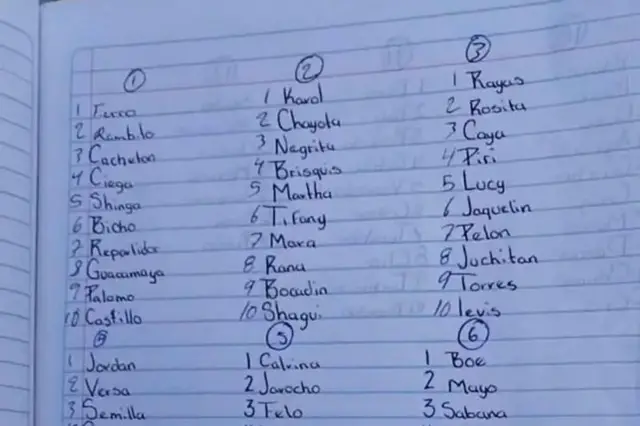 ①
1 Ferro
2 Rambito
3 Cacheton
4 Ciega
5 Shinga
6 Bicho
7 Repartidor
8 Guacamaya
9 Palomo
10 Castillo
②
1 Karol
2 Chayota
3 Negrita
4 Brisquis
5 Martha
6 Tifany
7 Mara
8 Rana
9 Bocadin
10 Shagui
③
1 Rayas
2 Rosita
3 Caya
4 Piri
5 Lucy
6 Jaquelin
7 Pelon
8 Juchitan
9 Torres
10 levis
1 Jordan
2 Versa
3 Semilla
⑤
1 Catrina
2 Jarocho
3 Telo
⑥
1 Boe
2 Mayo
3 Sabana